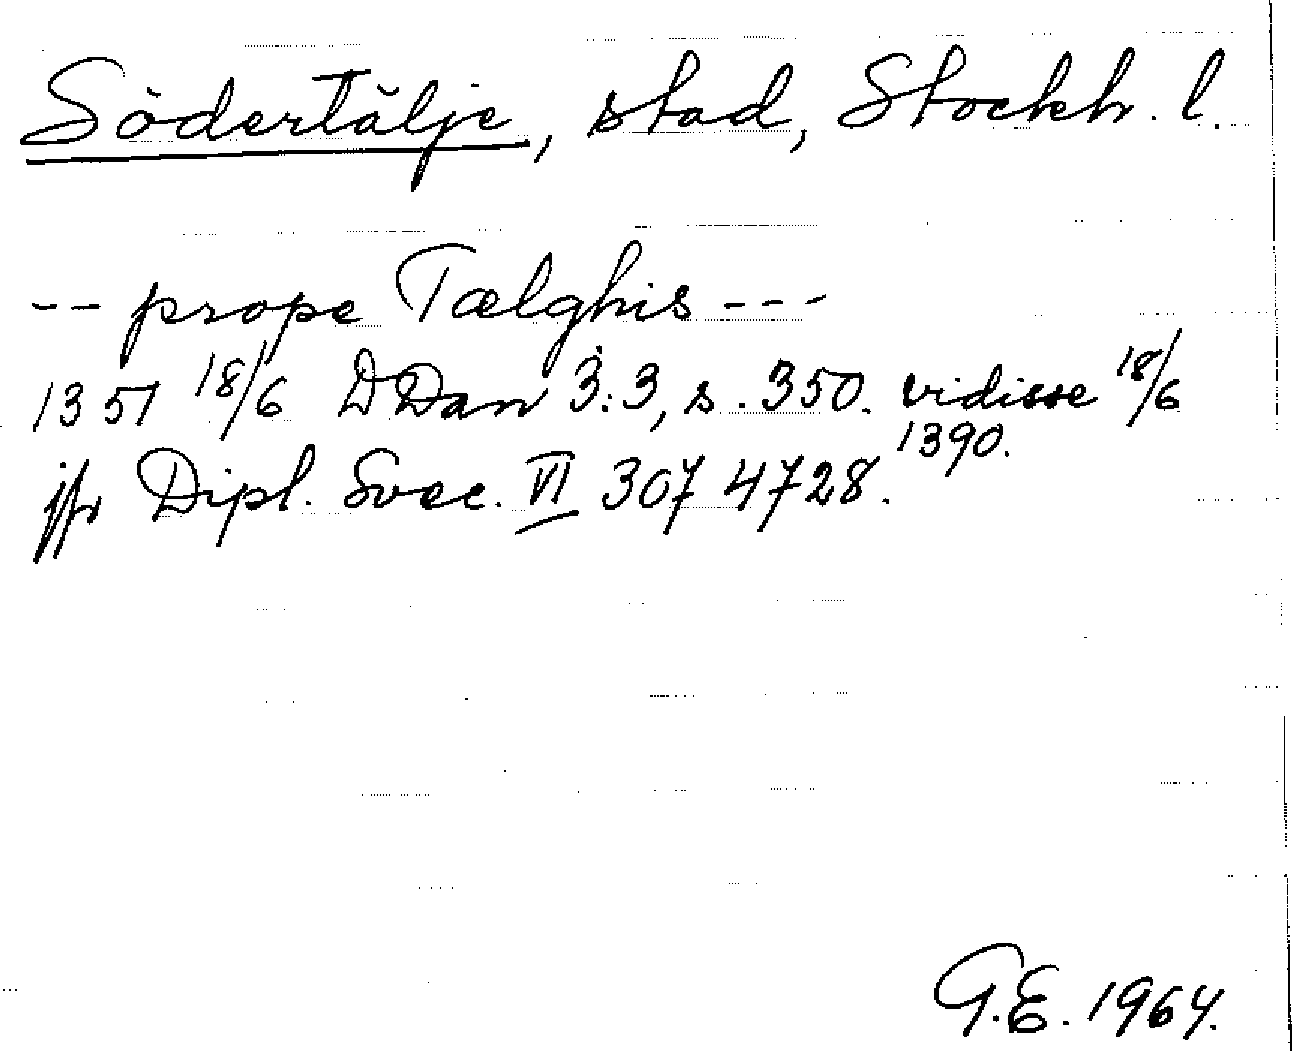 Södertälje, stad, Stockh. l.
-- prope Tælghis ---
1351 18/6 DDan 3:3, s. 350. vidisse 18/6
1390.
jfr Dipl. Svec. VI 307 4728.
G.E. 1964.